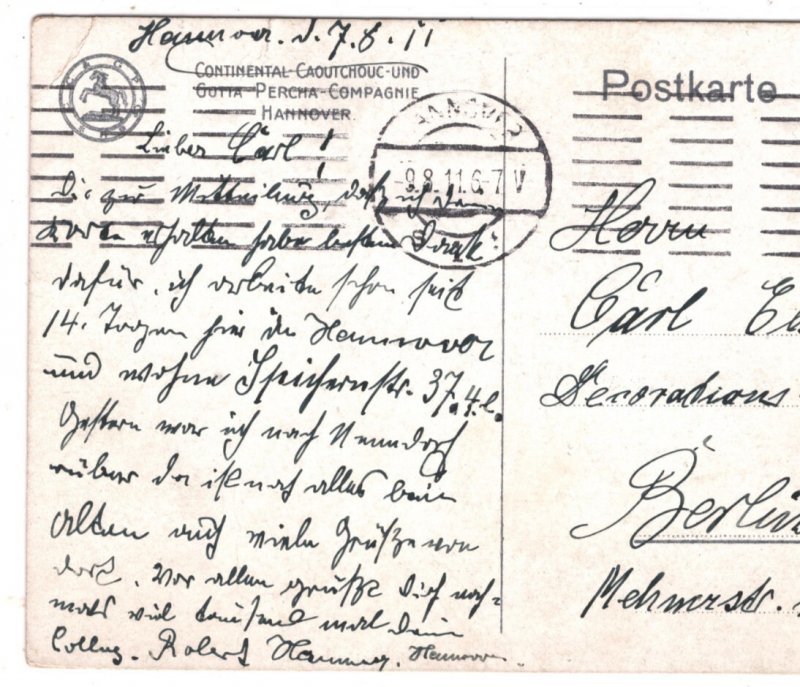 Hannover. d. 7.8.11
CONTINENTAL-CAOUTCHOUC-UND
GUTTA-PERCHA-COMPAGNIE
HANNOVER.
Postkarte
HANNOVER
9.8.11.6-7V
Lieber Carl!
Dir zur Mitteilung, daß ich Deine
Karte erhalten habe besten Dank
dafür. ich arbeite schon seit
14. Tagen hier in Hannover
und wohne Speichernstr. 37.4.l.
Gestern war ich nach Nenndorf
rüber da ist noch alles beim
alten auch viele Grüße von
dort. Vor allem grüßt Dich noch=
mals viel tausend mal Dein
Colleg. Robert Hannover.
Herrn
Carl
Decorations
Berlin